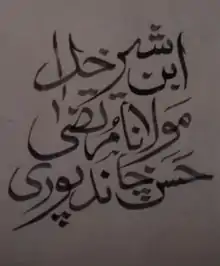 ابن شیر خدا
مولانا مرتضی
حسن چاندپوری